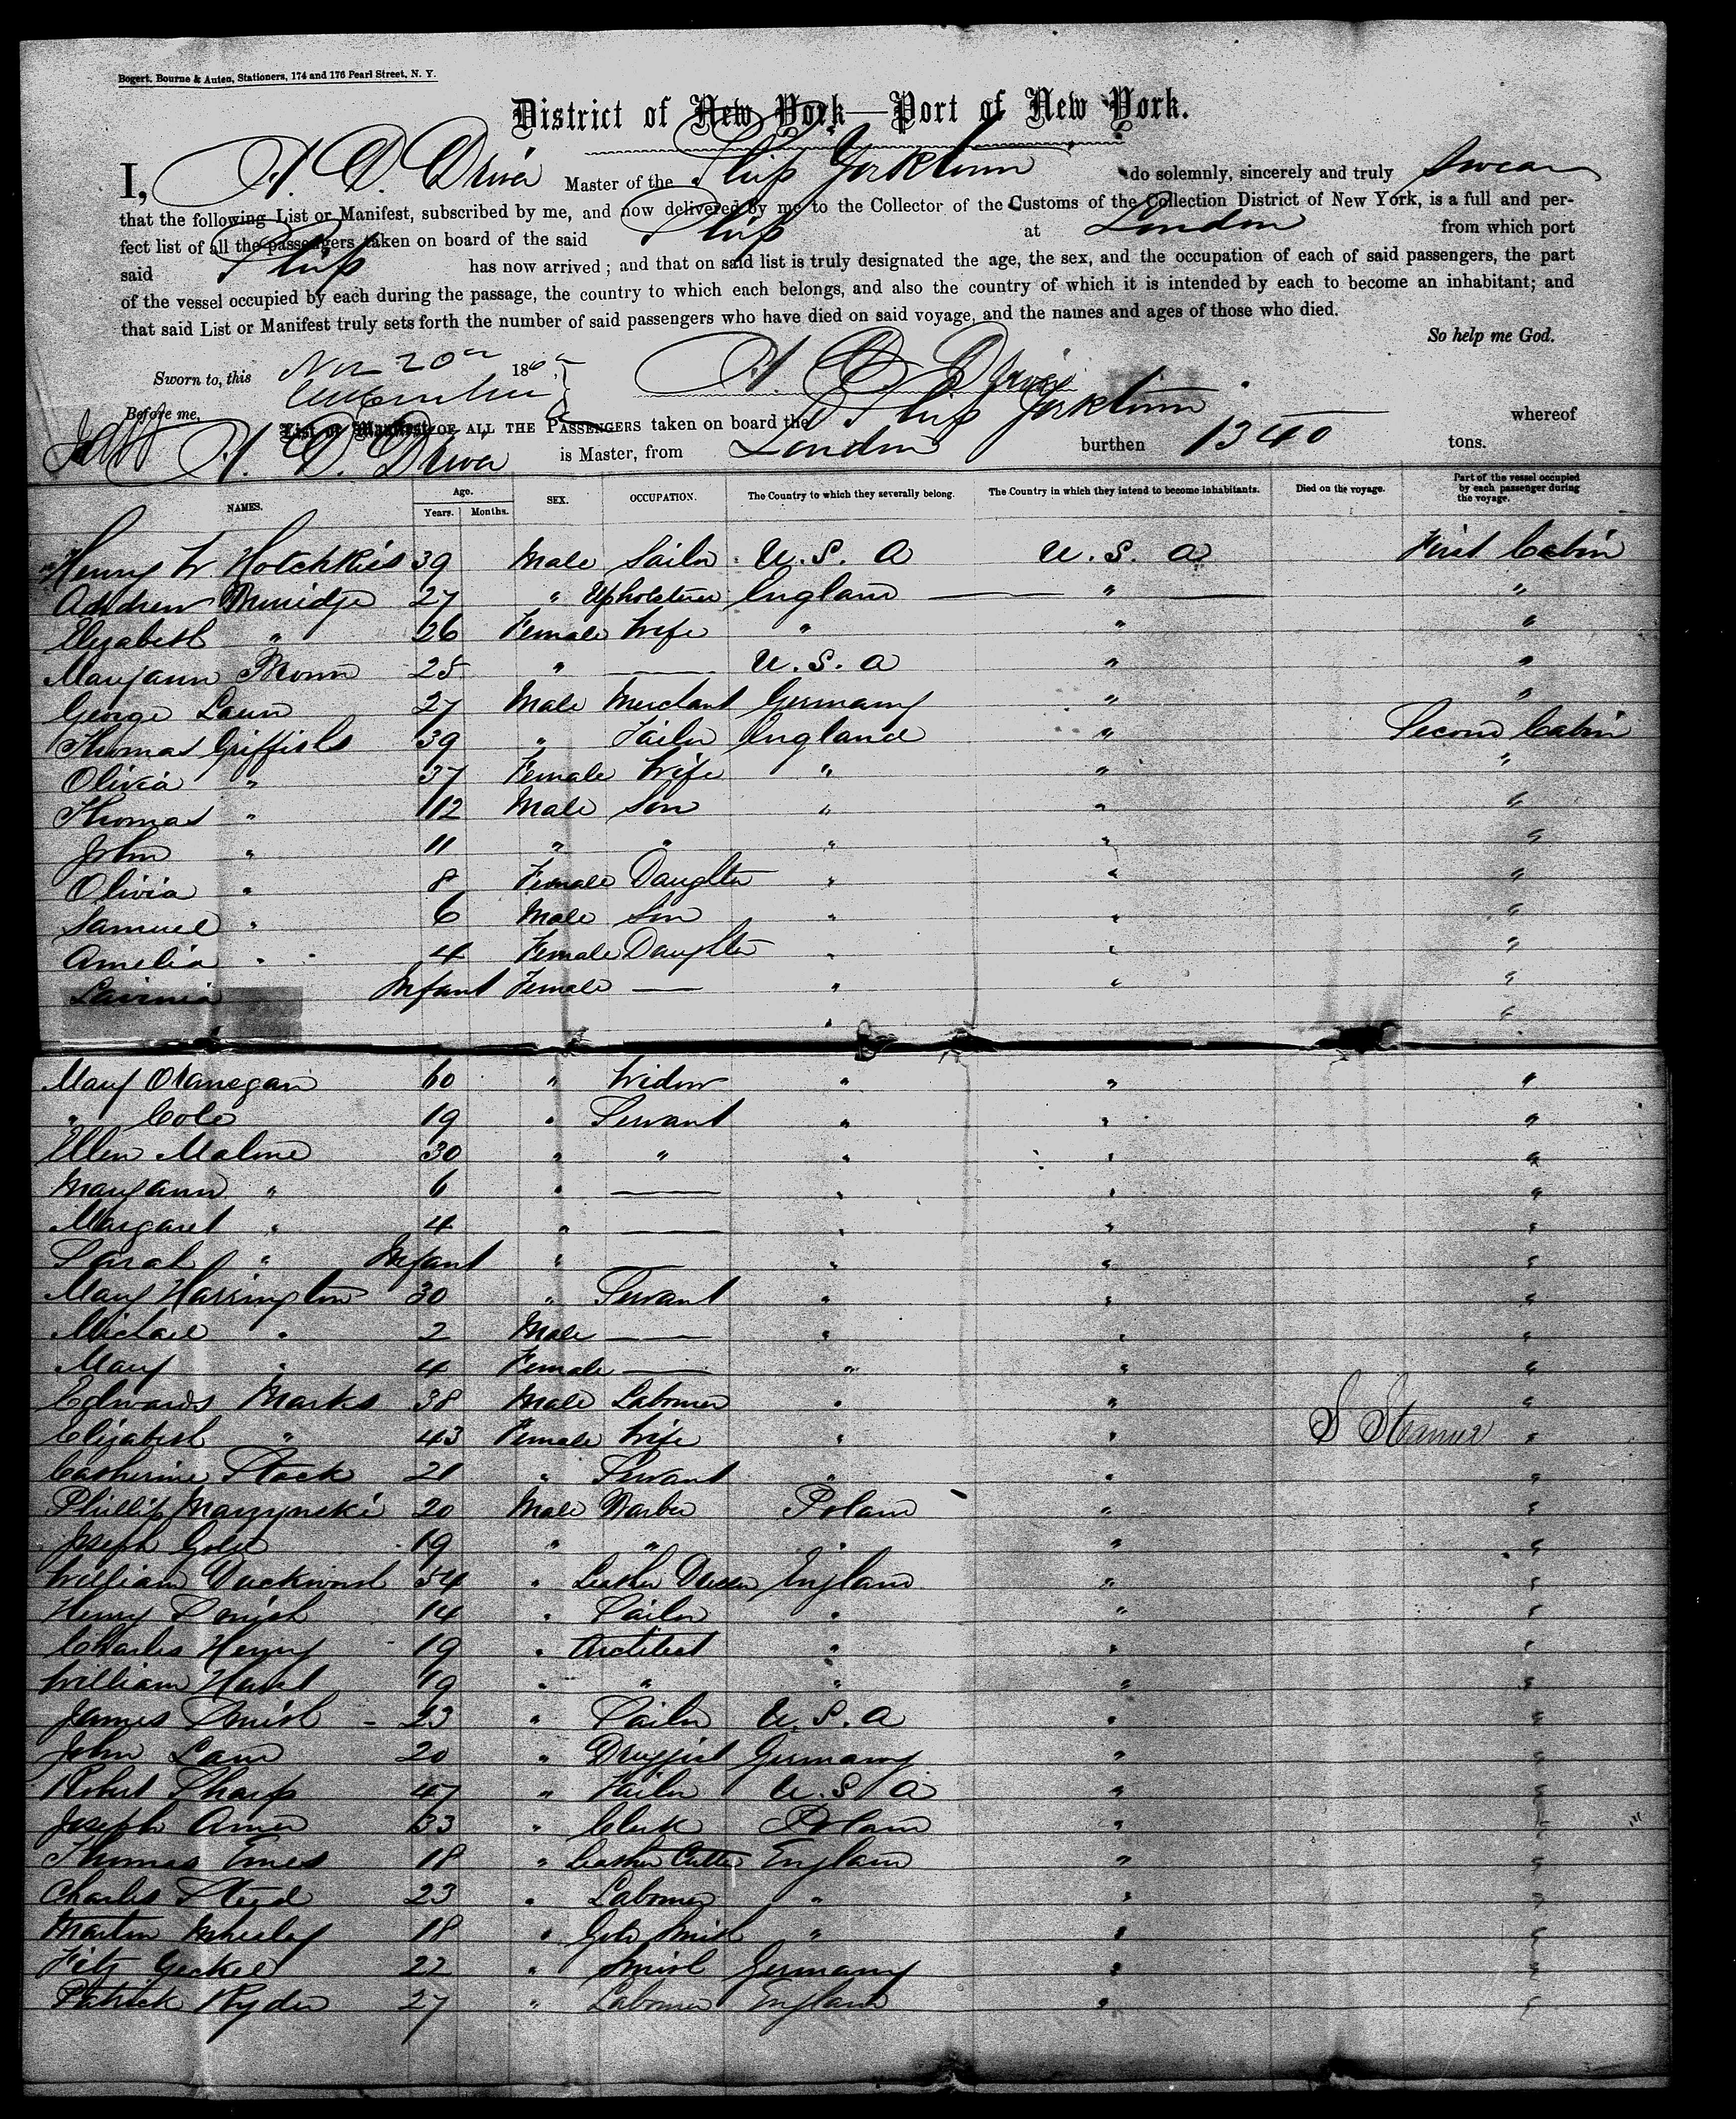 Bogert, Bourne & Auten, Stationers, 174 and 176 Pearl Street, N. Y.
District of New York—Port of New York.
I, A. D. Driver Master of the Ship Yorktown do solemnly, sincerely and truly Swear
that the following List or Manifest, subscribed by me, and now delivered by me to the Collector of the Customs of the Collection District of New York, is a full and per-
fect list of all the passengers taken on board of the said Ship at London from which port
said Ship has now arrived; and that on said list is truly designated the age, the sex, and the occupation of each of said passengers, the part
of the vessel occupied by each during the passage, the country to which each belongs, and also the country of which it is intended by each to become an inhabitant; and
that said List or Manifest truly sets forth the number of said passengers who have died on said voyage, and the names and ages of those who died.
So help me God.
Sworn to, this Nov 20 186
Before me, D. Driver
List or Manifest OF ALL THE PASSENGERS taken on board the Ship Yorktown whereof
D. Driver is Master, from London burthen 1340 tons.
NAMES. Age. Years. Months. SEX. OCCUPATION. The Country to which they severally belong. The Country in which they intend to become inhabitants. Died on the voyage. Part of the vessel occupied by each passenger during the voyage.
Henry W. Hotchkiss 39 Male Sailor U. S. A U. S. A First Cabin
Andrew 27 " Upholsterer England " "
Elizabeth " 26 Female Wife " " "
Maryann Brown 25 " — U. S. A " "
George Laun 27 Male Merchant Germany " "
Thomas Griffiths 39 " Tailor England " Second Cabin
Olivia " 37 Female Wife " " "
Thomas " 12 Male Son " " "
John " 11 " " " " "
Olivia " 8 Female Daughter " " "
Samuel " 6 Male Son " " "
Amelia " 4 Female Daughter " " "
Lavinia Infant Female — " " "
Mary Olanegan 60 " Widow " " "
" Cole 19 " Servant " " "
Ellen Malone 30 " " " " "
Maryann " 6 " — " " "
Margaret " 4 " — " " "
Sarah " Infant " " " "
Mary Harrington 30 " Servant " " "
Michael " 2 Male — " " "
Mary " 4 Female — " " "
Edward Marks 38 Male Labourer " " "
Elizabeth " 43 Female Wife " " "
Catherine Stack 21 " Servant " " "
Phillip 20 Male Barber Poland " "
Joseph Gold 19 " " " " "
William Duckworth 54 " Leather Dresser England " "
Henry Smith 14 " Sailor " " "
Charles Henry 19 " Architect " " "
William Hart 19 " " " " "
James Smith 23 " Sailor U. S. A " "
John Laun 20 " Druggist Germany " "
Robert Sharp 47 " Tailor U. S A " "
Joseph 33 " Clerk Poland " "
Thomas Emes 18 " Leather Cutter England " "
Charles Steed 23 " Labourer " " "
Martin 18 " Gold Smith " " "
Fitz Geckel 22 " Smith Germany " "
Patrick Ryder 27 " Labourer England " "